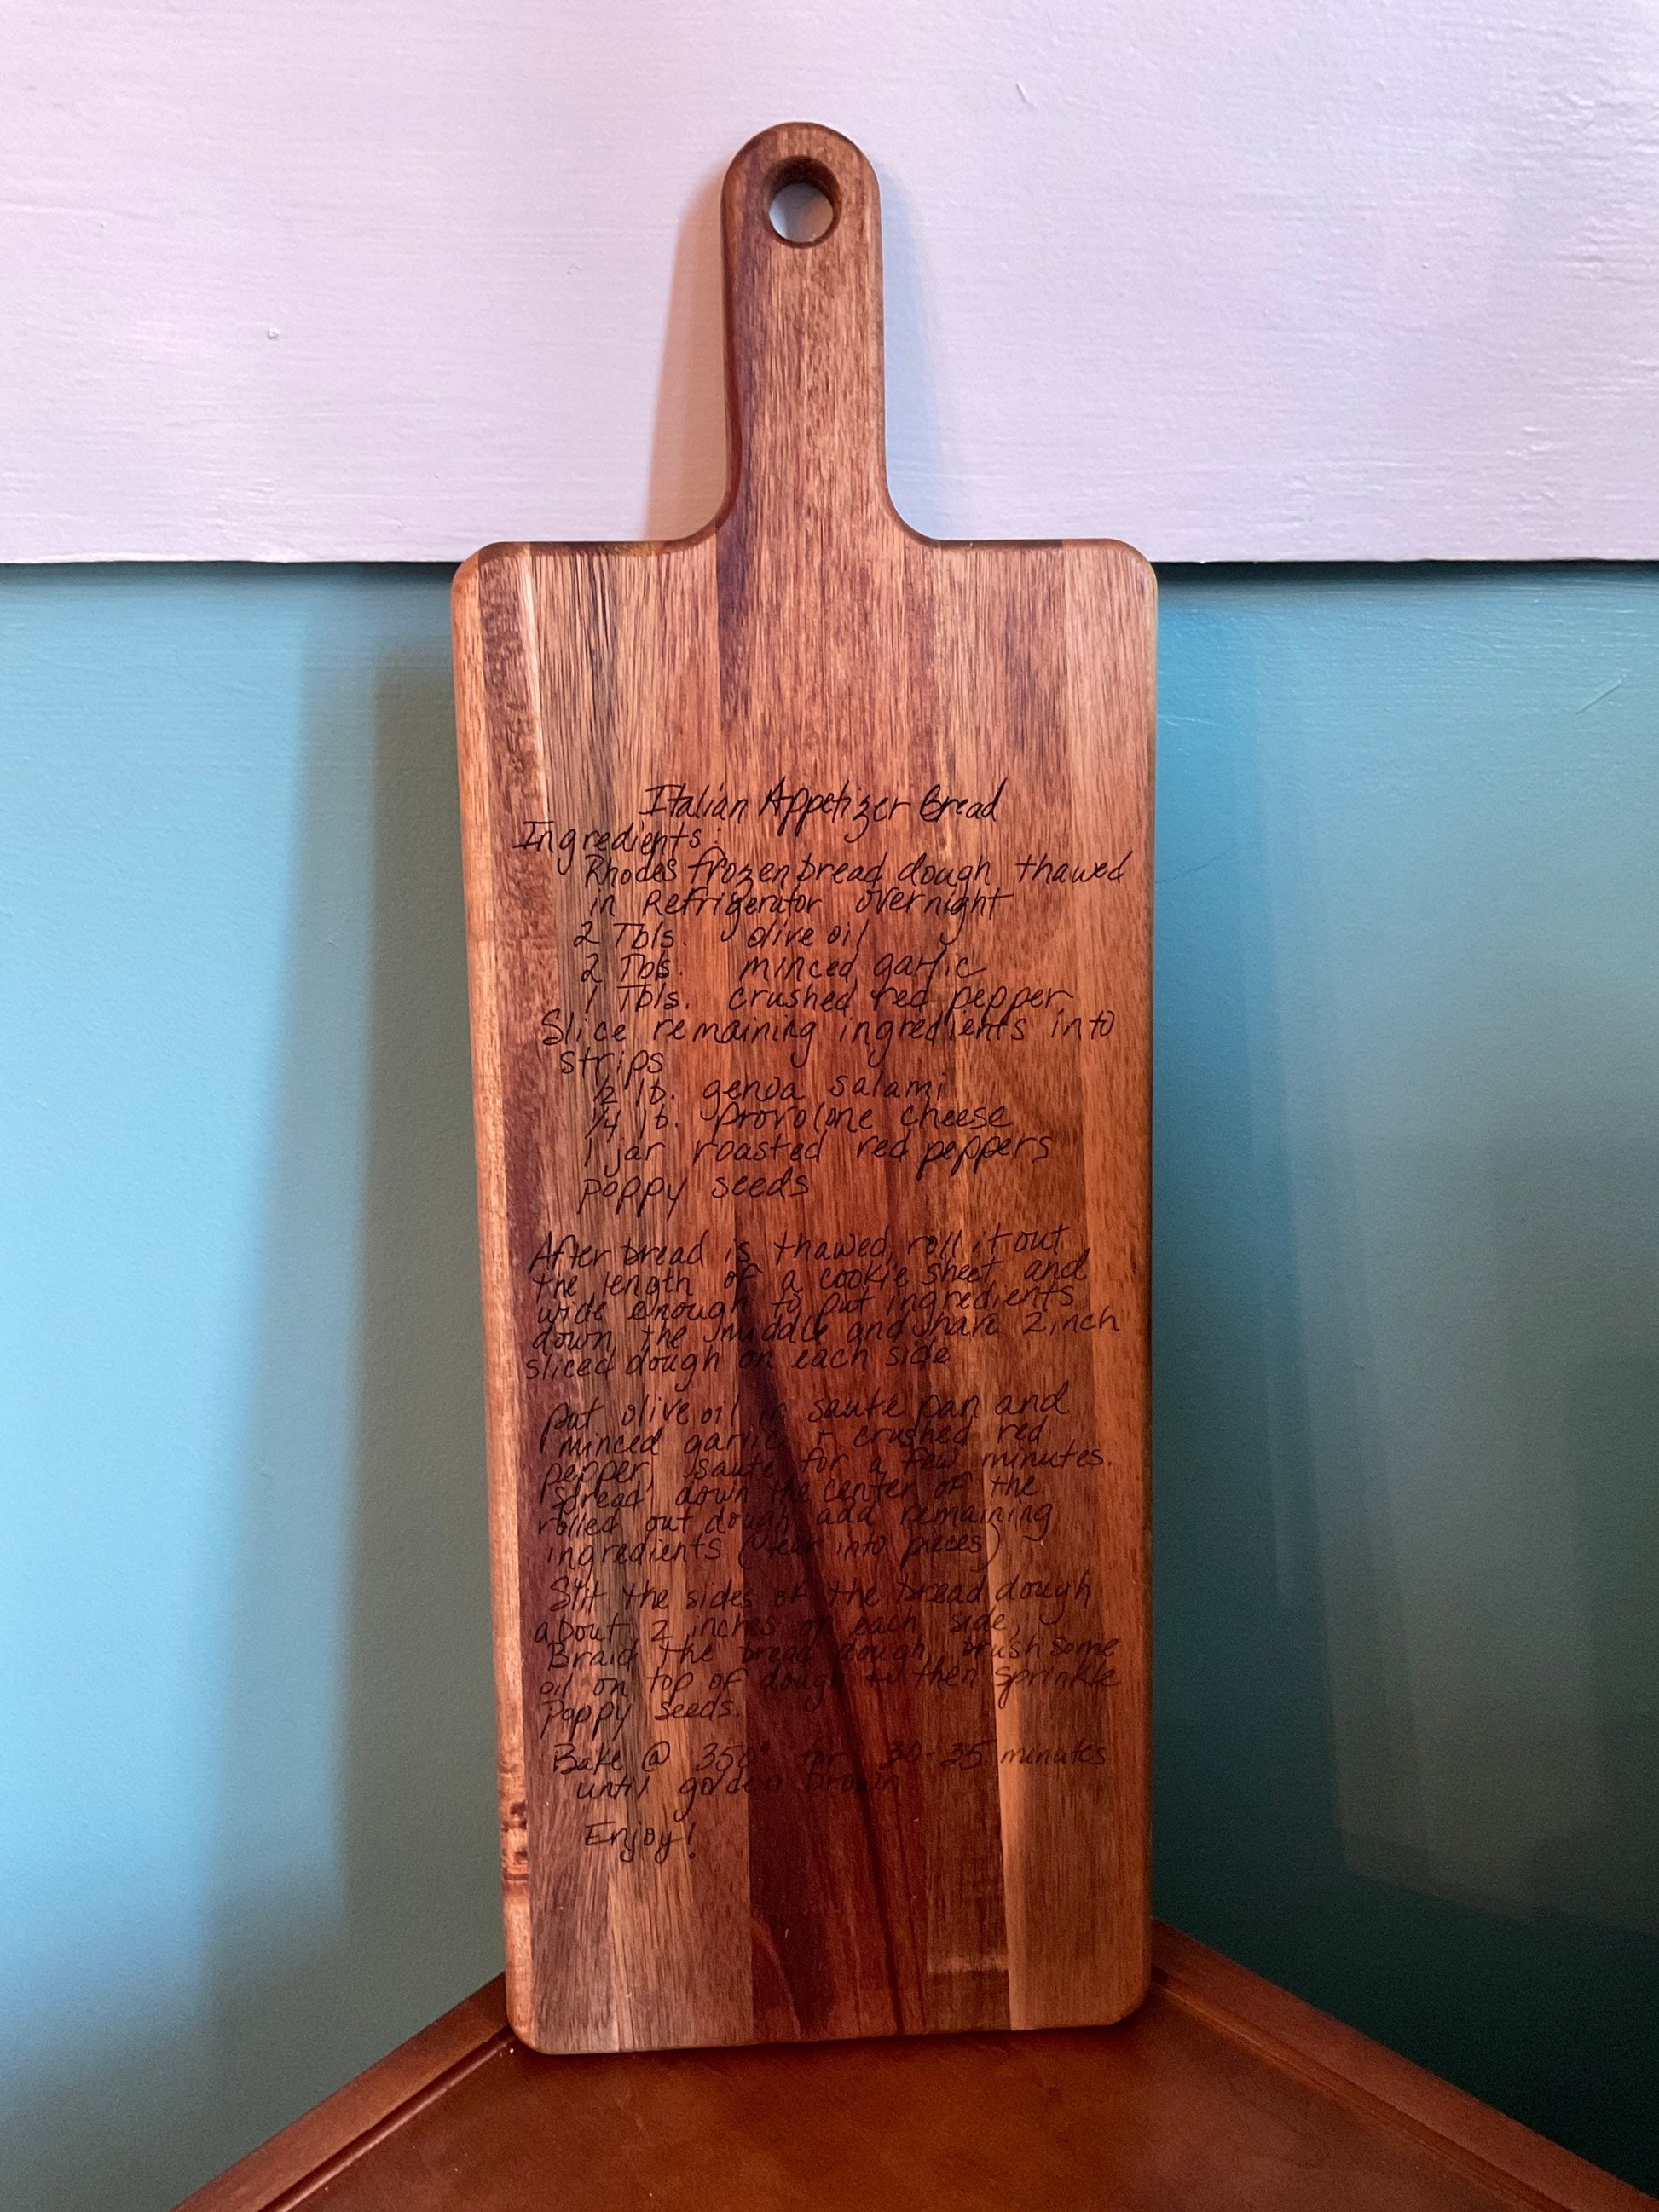 Italian Appetizer Bread
Ingredients:
Rhodes frozen bread dough thawed
in Refrigerator overnight
2 Tbls. olive oil
2 Tbls. minced garlic
1 Tbls. crushed red pepper
Slice remaining ingredients into
strips
1/2 lb. genoa salami
1/4 lb. provolone cheese
1 jar roasted red peppers
poppy seeds
After bread is thawed, roll it out
the length of a cookie sheet and
wide enough to put ingredients
down the middle and have 2 inch
sliced dough on each side
put olive oil in saute pan and
minced garlic + crushed red
pepper, saute for a few minutes.
Spread down the center of the
rolled out dough add remaining
ingredients (tear into pieces)
Slit the sides of the bread dough
about 2 inches on each side,
Braid the bread dough, brush some
oil on top of dough then sprinkle
poppy seeds.
Bake @ 350° for 30-35 minutes
until golden brown
Enjoy!